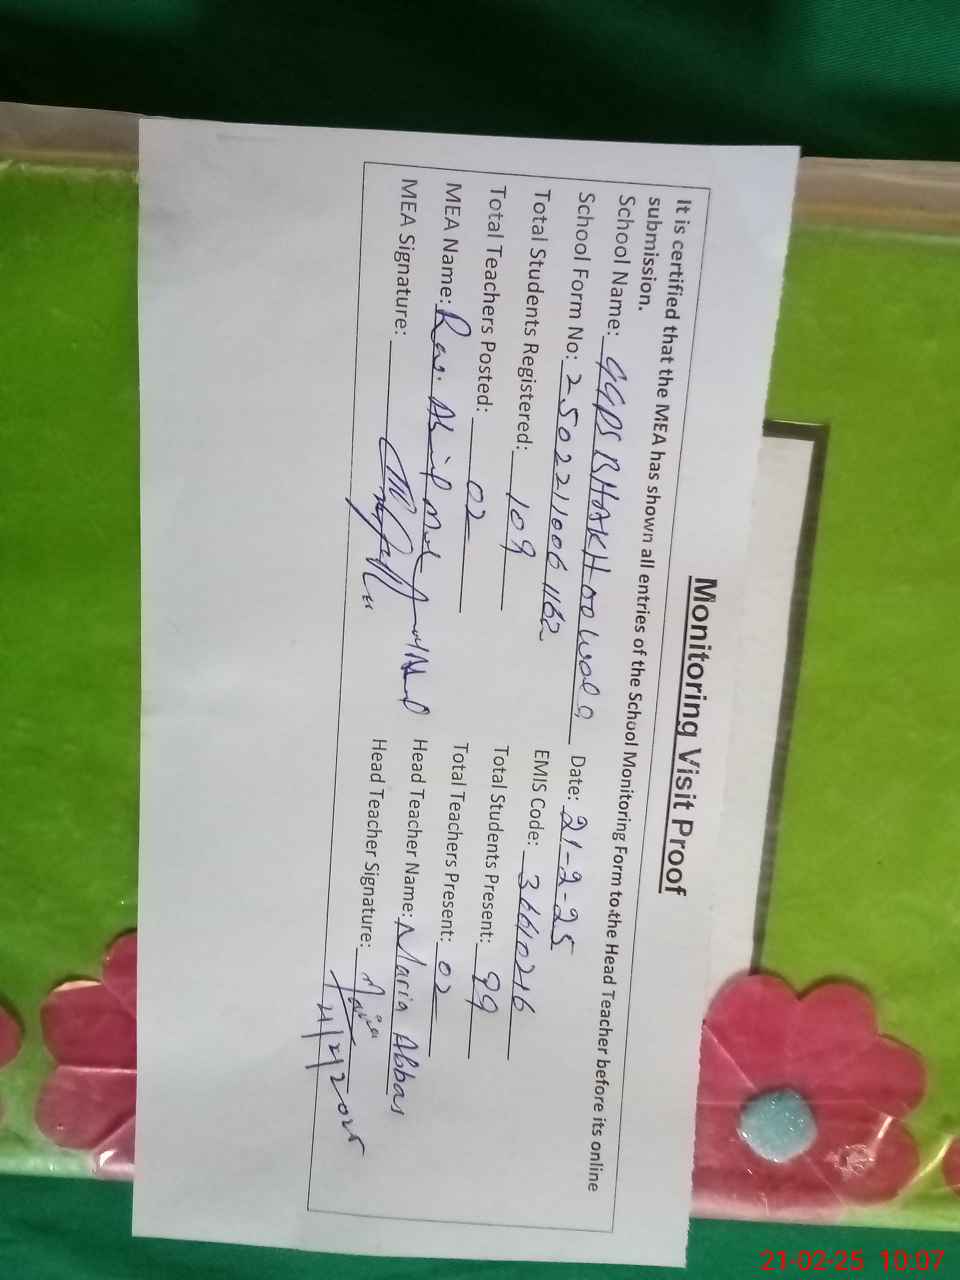 Monitoring Visit Proof
It is certified that the MEA has shown all entries of the School Monitoring Form to the Head Teacher before its online
submission.
School Name: GGPS BHAKHOO Wala Date: 21-2-25
School Form No: 250221006 1162 EMIS Code: 36610216
Total Students Registered: 109 Total Students Present: 99
Total Teachers Posted: 02 Total Teachers Present: 02
MEA Name: Abid Head Teacher Name: Maria Abbas
MEA Signature: Head Teacher Signature: Maria
21/2/2025
21-02-25 10:07